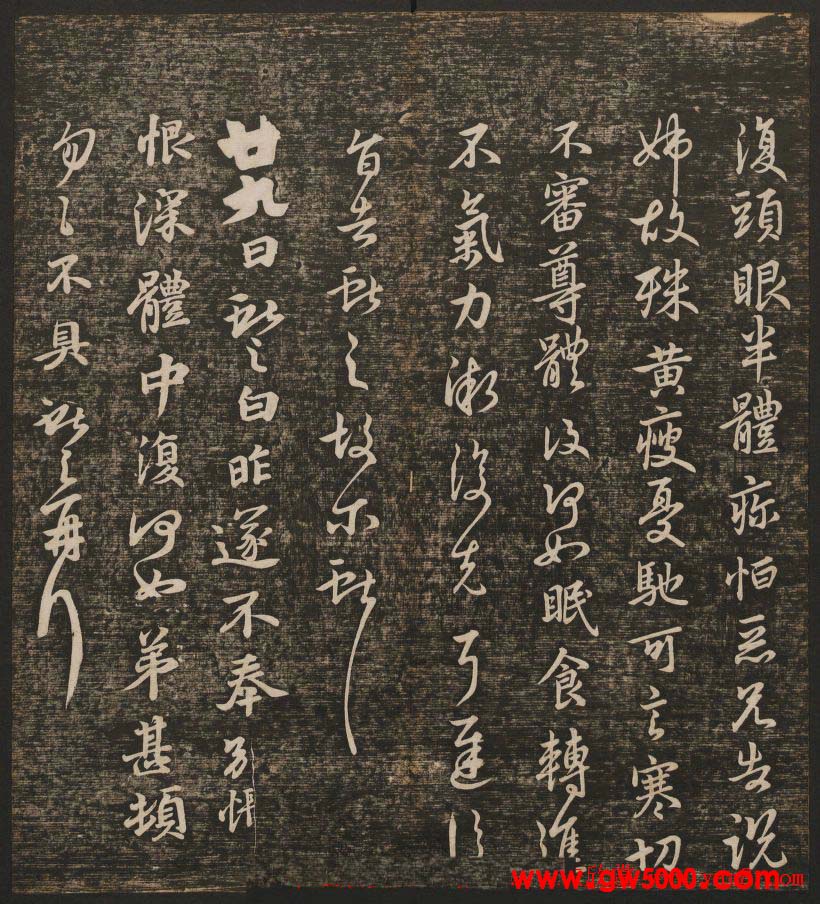 復頭眼半體疼恒惡兄告說
姊故殊黃瘦憂馳可言寒切
不審尊體復何如眠食轉進
不氣力漸復先
旨告獻之故爾獻
廿九日獻之白昨遂不奉別悵
恨深體中復何如弟甚頓
匆匆不具獻之再拜
www.gw5000.com